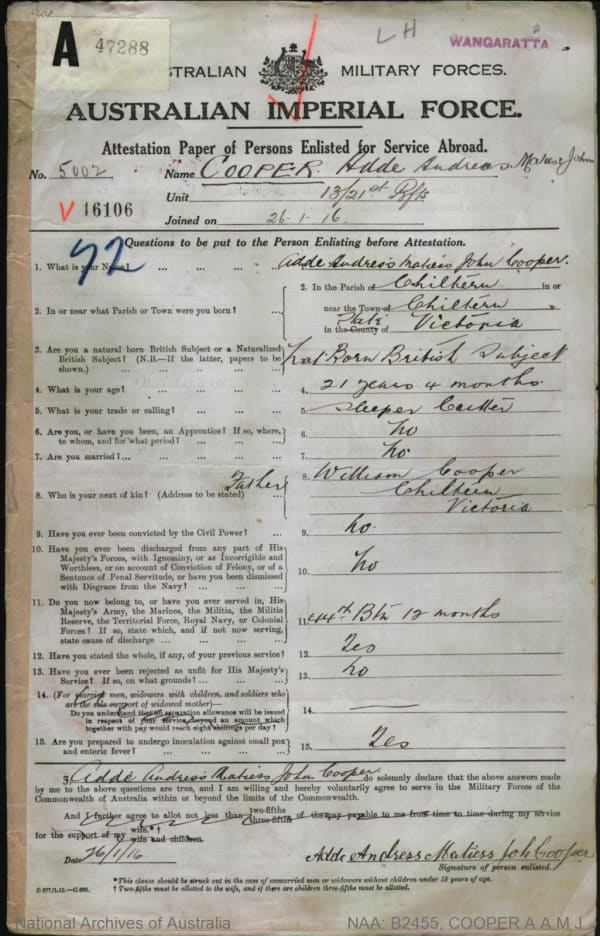 A 47288
LH
WANGARATTA
AUSTRALIAN MILITARY FORCES.
AUSTRALIAN IMPERIAL FORCE.
Attestation Paper of Persons Enlisted for Service Abroad.
No. 5002 Name COOPER. Adde Andreas Matiess John
Unit 13/21st Rfts
V 16106
Joined on 26.1.16.
72
Questions to be put to the Person Enlisting before Attestation.
1. What is your Name? ... ... ... ... Adde Andress Matiess John Cooper.
2. In or near what Parish or Town were you born? ... 2. In the Parish of Chiltern in or
near the Town of Chiltern
in the County of State Victoria
3. Are you a natural born British Subject or a Naturalized
British Subject? (N.B.—If the latter, papers to be
shown.) ... ... ... ... Nat Born British Subject
4. What is your age? ... ... ... ... 4. 21 years 4 months.
5. What is your trade or calling? ... ... ... 5. Sleeper Cutter
6. Are you, or have you been, an Apprentice? If so, where,
to whom, and for what period? ... ... ... 6. No
7. Are you married? ... ... ... ... 7. No
8. Who is your next of kin? (Address to be stated) ... Father 8. William Cooper
Chiltern
Victoria
9. Have you ever been convicted by the Civil Power? ... 9. No.
10. Have you ever been discharged from any part of His
Majesty's Forces, with Ignominy, or as Incorrigible and
Worthless, or on account of Conviction of Felony, or of a
Sentence of Penal Servitude, or have you been dismissed
with Disgrace from the Navy? ... ... ... 10. No
11. Do you now belong to, or have you ever served in, His
Majesty's Army, the Marines, the Militia, the Militia
Reserve, the Territorial Force, Royal Navy, or Colonial
Forces? If so, state which, and if not now serving,
state cause of discharge ... ... ... ... 11. 44th Btn 12 months
12. Have you stated the whole, if any, of your previous service? 12. Yes
13. Have you ever been rejected as unfit for His Majesty's
Service? If so, on what grounds? ... ... ... 13. No
14. (For married men, widowers with children, and soldiers who
are the sole support of widowed mother)—
Do you understand that no separation allowance will be issued
in respect of your service beyond an amount which
together with pay would reach eight shillings per day? 14. —
15. Are you prepared to undergo inoculation against small pox
and enteric fever? ... ... ... ... 15. Yes
I, Adde Andress Matiess John Cooper do solemnly declare that the above answers made
by me to the above questions are true, and I am willing and hereby voluntarily agree to serve in the Military Forces of the
Commonwealth of Australia within or beyond the limits of the Commonwealth.
And I further agree to allot not less than two-fifths three-fifths of the pay payable to me from time to time during my service
for the support of my wife.*† wife and children.
Date 26/1/16
Adde Andress Matiess Joh Cooper
Signature of person enlisted.
*This clause should be struck out in the case of unmarried men or widowers without children under 18 years of age.
† Two-fifths must be allotted to the wife, and if there are children three-fifths must be allotted.
D.877/1.15.—C.683.
National Archives of Australia
NAA: B2455, COOPER A A M J